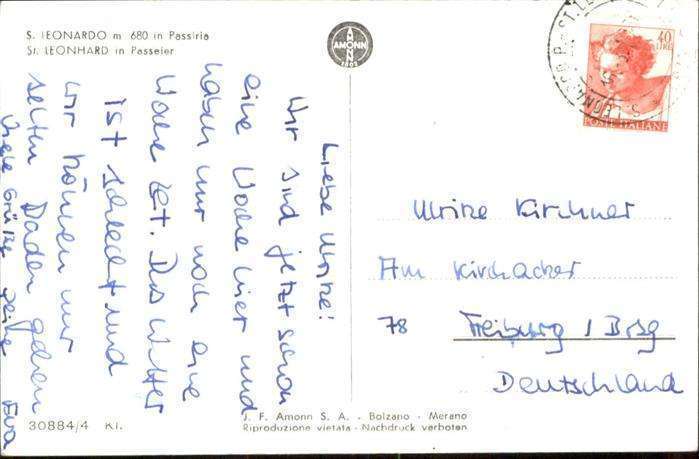 S. LEONARDO m 680 in Passiria
St. LEONHARD in Passeier
AMONN
1802
40
LIRE
POSTE ITALIANE
Liebe Ulrike!
Wir sind jetzt schon
eine Woche hier und
haben nur noch eine
Woche Zeit. Das Wetter
ist schlecht und
wir können nur
selten Baden gehen
Viele Grüße Deine Eva
Ulrike Kirchner
Am Kirchacker
78 Freiburg / Brsg
Deutschland
30884/4 Kl.
J. F. Amonn S. A. - Bolzano - Merano
Riproduzione vietata - Nachdruck verboten